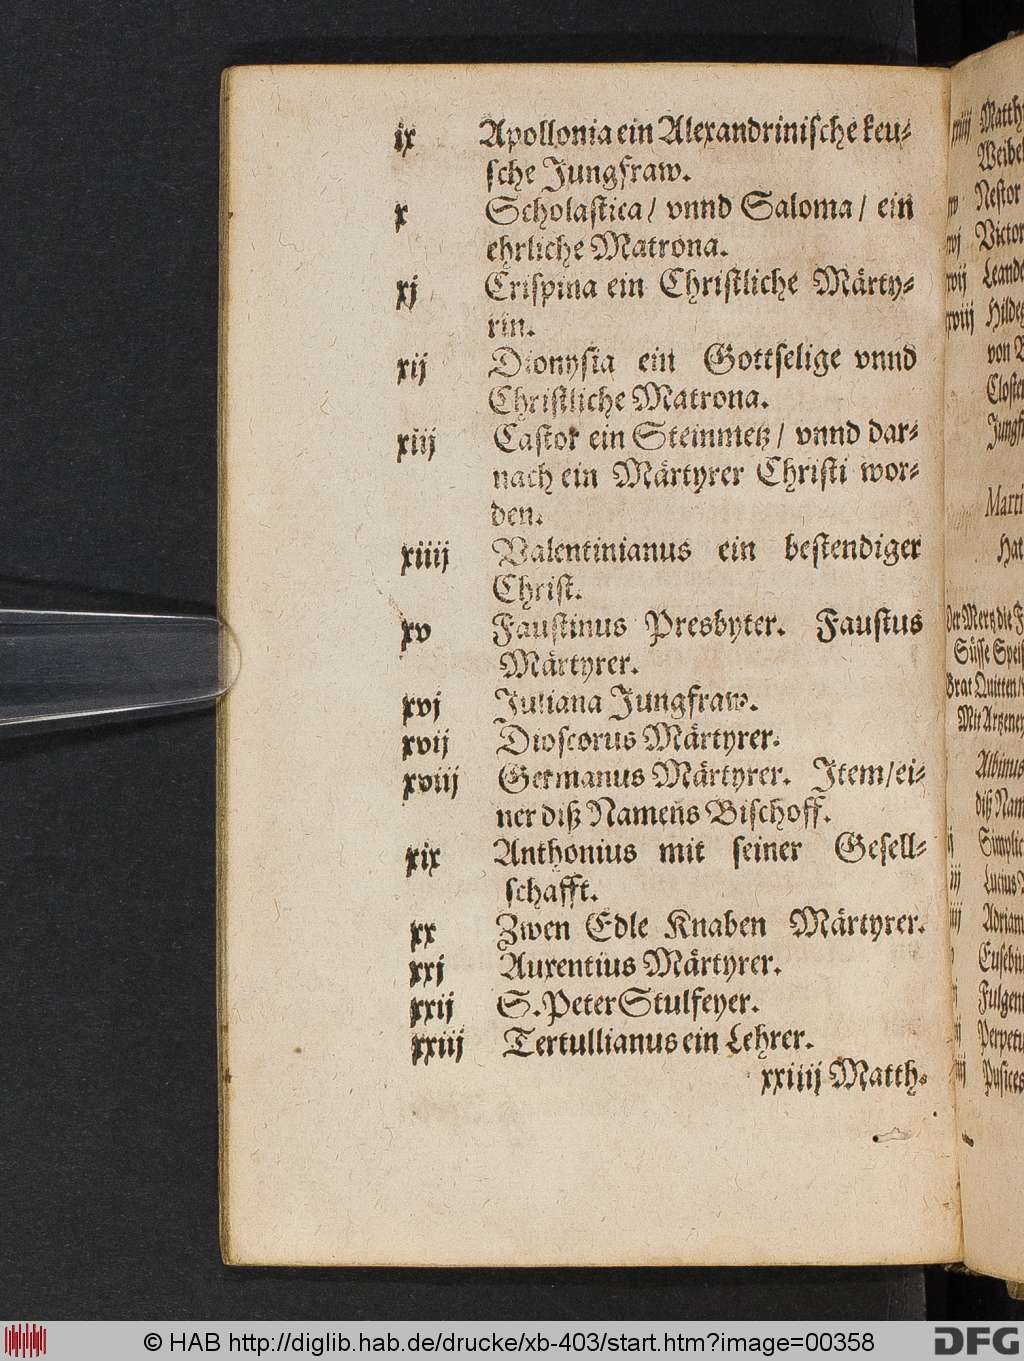 ix Apollonia ein Alexandrinische keu-
sche Jungfraw.
x Scholastica / vnnd Saloma / ein
ehrliche Matrona.
xj Crispina ein Christliche Märty-
rin.
xij Dionysia ein Gottselige vnnd
Christliche Matrona.
xiij Castor ein Steinmetz / vnnd dar-
nach ein Märtyrer Christi wor-
den.
xiiij Valentinianus ein bestendiger
Christ.
xv Faustinus Presbyter. Faustus
Märtyrer.
xvj Juliana Jungfraw.
xvij Dioscorus Märtyrer.
xviij Germanus Märtyrer. Item/ei-
ner diß Namens Bischoff.
xix Anthonius mit seiner Gesell-
schafft.
xx Zwen Edle Knaben Märtyrer.
xxj Auxentius Märtyrer.
xxij S. Peter Stulfeyer.
xxiij Tertullianus ein Lehrer.
xxiiij Matth-
Nestor
Victor
von
Jungf
Marti
Der Mertz die
Süsse Speis
Brat Quitten/
Mit Artzeney
Albinus
diß Nam
Simplic
Lucius
Adrian
Eusebiu
Fulgen
Perpetu
© HAB http://diglib.hab.de/drucke/xb-403/start.htm?image=00358
DFG